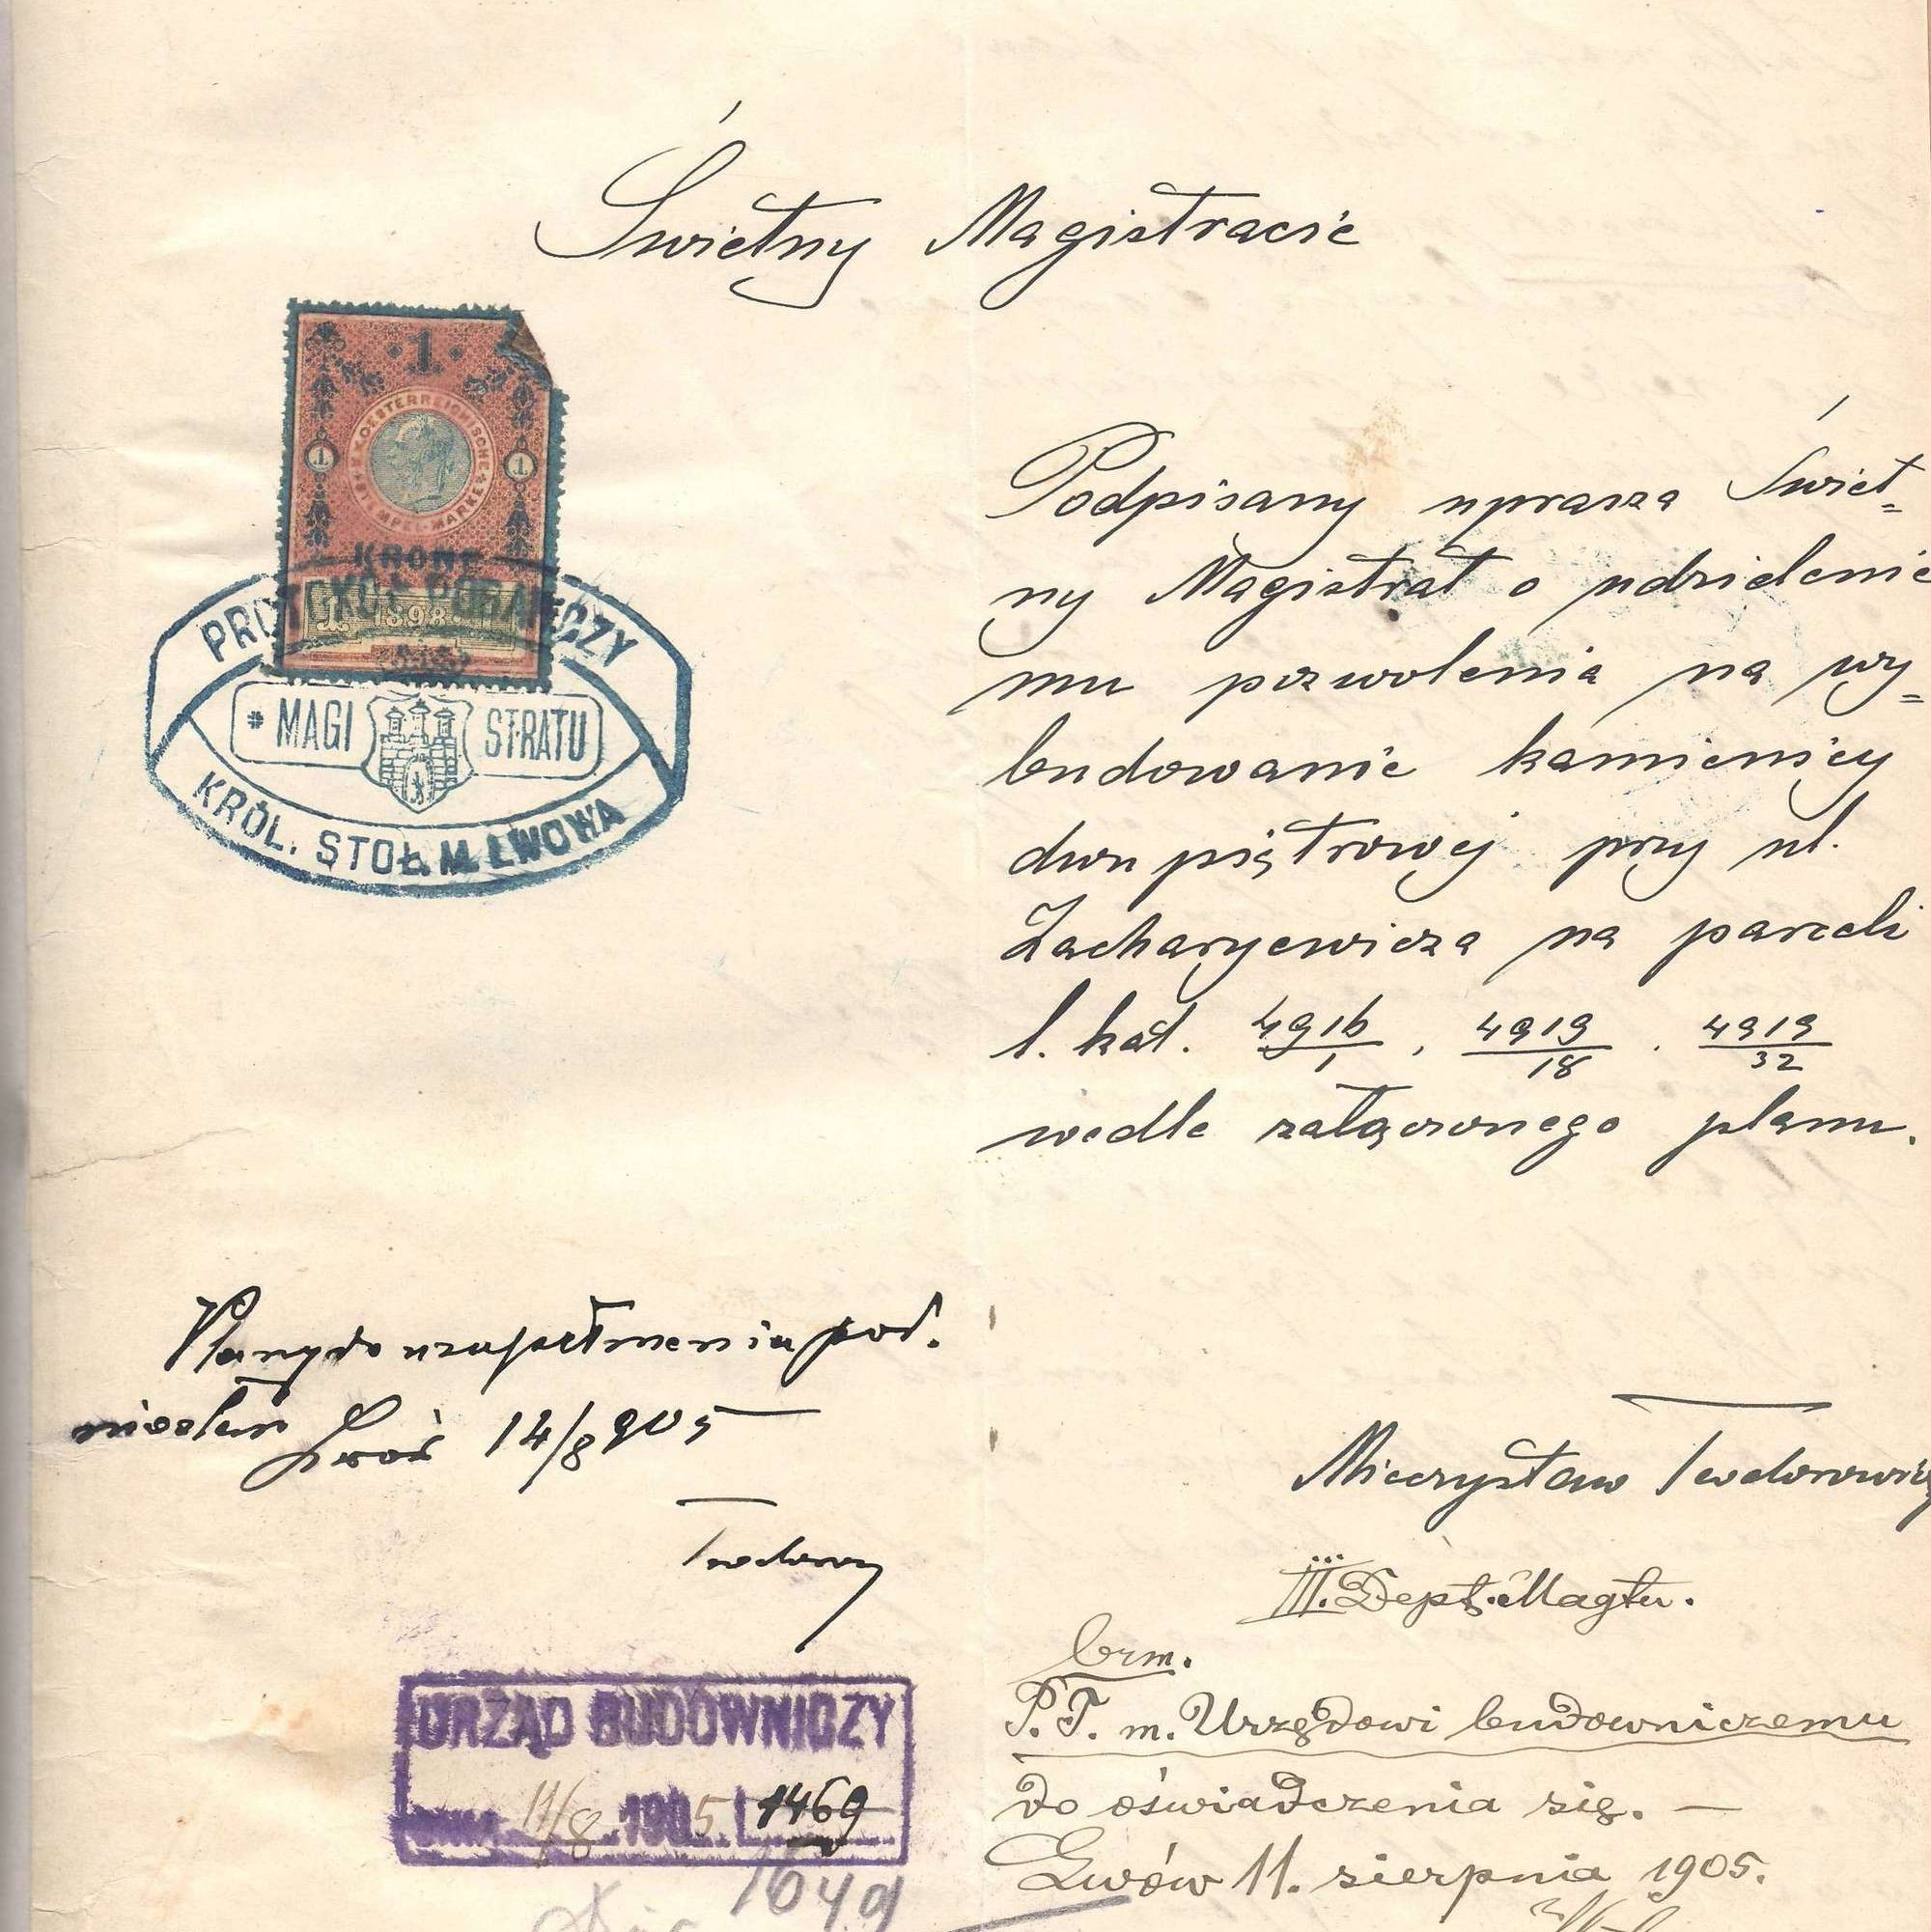 Świetny Magistracie
1
K.K. OESTERREICHISCHE STEMPEL-MARKE
1 1
KRONE
1898
PROTOKÓŁ PODAWCZY
* MAGISTRATU
KRÓL. STOŁ. M. LWOWA
Podpisany uprasza Świet=
ny Magistrat o udzielenie
mu pozwolenia na wy=
budowanie kamienicy
dwu piętrowej przy ul.
Zacharyewicza na parceli
l. kat. 4916/1 , 4919/18 . 4919/32
wedle załączonego planu.
Mieczysław Teodorowicz
Plany do uzupełnienia pod.
niosłem Lwów 14/8 905
Teodorowicz
III. Dept. Magtu.
brm.
P.T. m. Urzędowi budowniczemu
do oświadczenia się. —
Lwów 11. sierpnia 1905.
URZĄD BUDOWNICZY
DNIA 11/8 1905 L 1469
1649